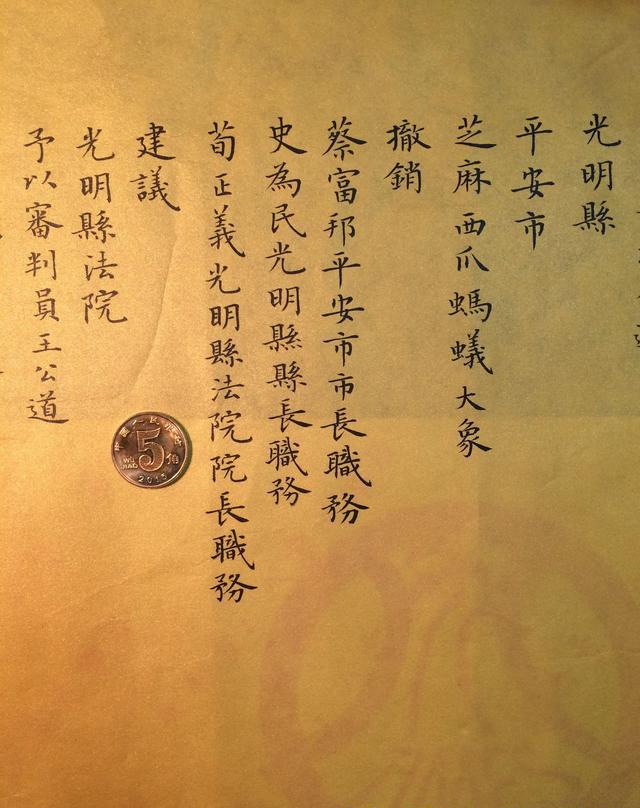 光明縣
平安市
芝麻西爪螞蟻大象
撤銷
蔡富邦平安市市長職務
史為民光明縣縣長職務
荀正義光明縣法院院長職務
建議
光明縣法院
予以審判員王公道
5
角
WU JIAO
2015